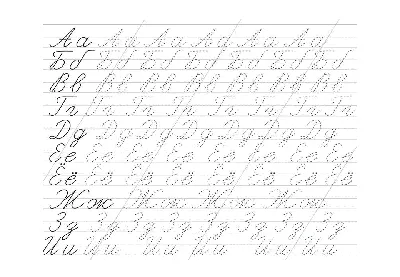 Аа Аа Аа Аа Аа Аа
Бб Бб Бб Бб Бб Бб Бб
Вв Вв Вв Вв Вв Вв Вв
Гг Гг Гг Гг Гг Гг Гг Гг
Дд Дд Дд Дд Дд Дд Дд
Ее Ее Ее Ее Ее Ее Ее Ее
Ёё Ёё Ёё Ёё Ёё Ёё Ёё Ёё
Жж Жж Жж Жж
Зз Зз Зз Зз Зз Зз Зз Зз
Ии Ии Ии Ии Ии Ии